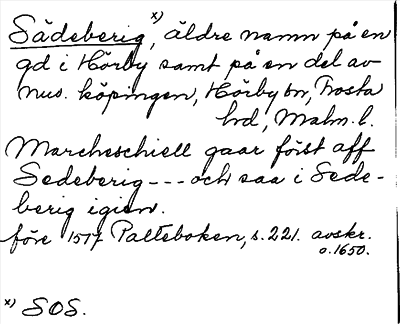 Sädeberig x), äldre namn på en
gd i Hörby samt på en del av
nuv. köpingen, Hörby sn, Frosta
hd, Malm. l.
Marcheschiell gaar först aff
Sedeberig --- och saa i Sede-
berig igien.
före 1577 Palteboken, s. 221. avskr.
o. 1650.
x) SOS.